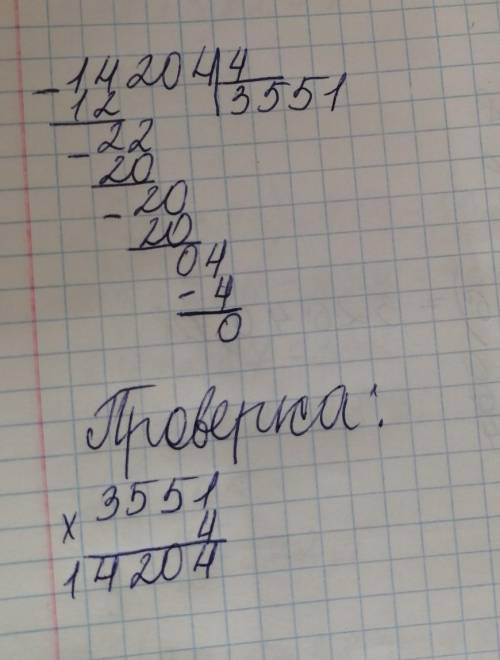 - 14204 | 4
12 | 3551
- 22
20
- 20
20
04
- 4
0
Проверка:
3551
x 4
14204